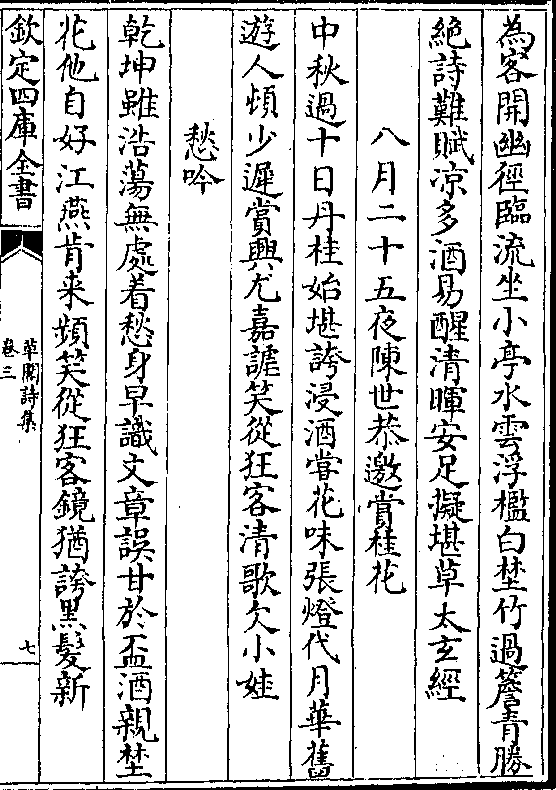 為客開幽徑臨流坐小亭水雲浮檻白埜竹過簷青勝
絶詩難賦凉多酒易醒清暉安足擬堪草太玄經
八月二十五夜陳世恭邀賞桂花
中秋過十日丹桂始堪誇浸酒嘗花味張燈代月華舊
遊人頻少遲賞興尤嘉謔笑從狂客清歌欠小娃
愁吟
乾坤雖浩蕩無處着愁身早識文章誤甘於盃酒親埜
花他自好江燕肯来頻笑從狂客鏡猶誇黒髮新
欽定四庫全書
草閣詩集
卷三
七